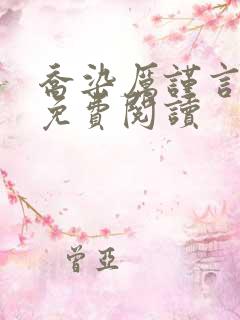 喬染厲謹言
免費閱讀
曾亞